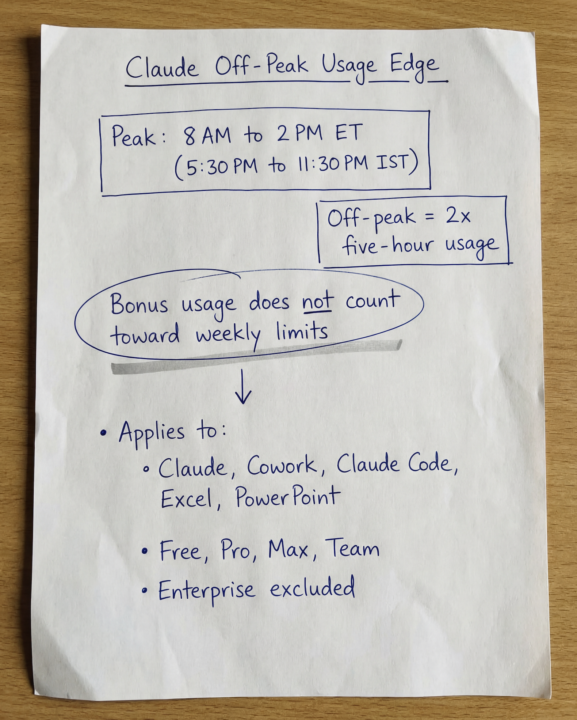 Claude Off-Peak Usage Edge
Peak: 8 AM to 2 PM ET
(5:30 PM to 11:30 PM IST)
Off-peak = 2x
five-hour usage
Bonus usage does not count
toward weekly limits
↓
• Applies to:
• Claude, Cowork, Claude Code,
Excel, PowerPoint
• Free, Pro, Max, Team
• Enterprise excluded